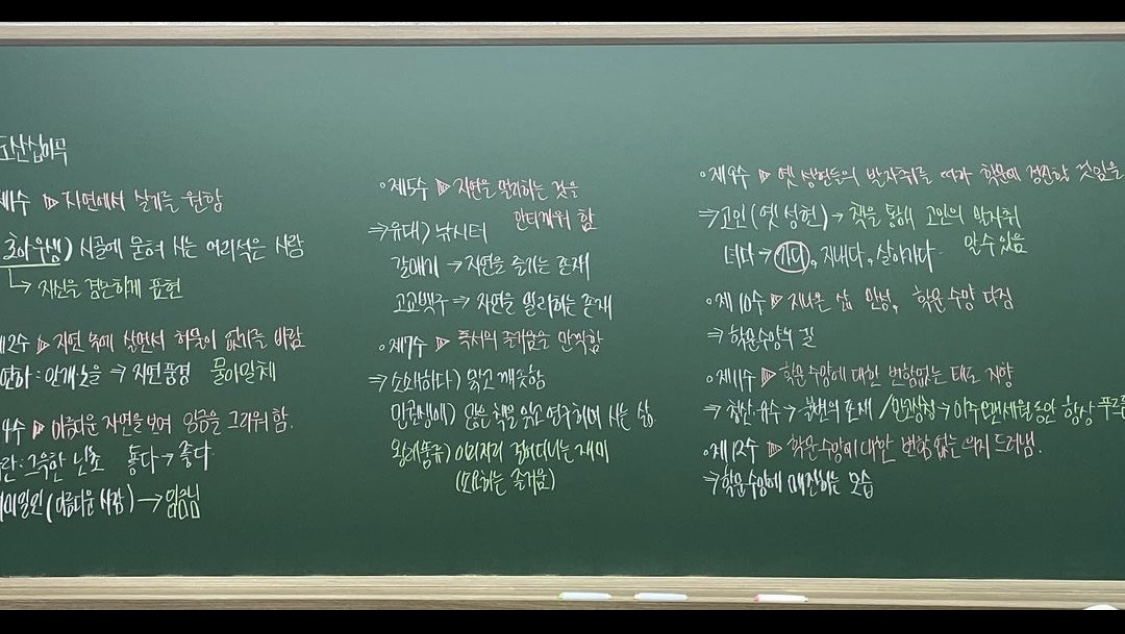 도산십이곡
제1수 ▷ 자연에서 살기를 원함
초야우생) 시골에 묻혀 사는 어리석은 사람
↳ 자신을 겸손하게 표현
제2수 ▷ 자연 속에 살면서 허물이 없기를 바람
연하 : 안개·노을 → 자연풍경 물아일체
4수 ▷ 아름다운 자연을 보며 임금을 그리워 함.
란 : 그윽한 난초 듣다 → 좋다
미일인 (아름다운 사람) → 임금님
◦제5수 ▷ 자연을 멀리하는 것을
안타까워 함
⇒ 유대) 낚시터
갈매기 → 자연을 즐기는 존재
교교백구 → 자연을 멀리하는 존재
◦제7수 ▷ 독서의 즐거움을 만끽함
⇒ 소쇄하다) 맑고 깨끗함
만권생애) 많은 책을 읽고 연구하며 사는 삶
왕래풍류) 이리저리 걸어다니는 재미
(산책하는 즐거움)
◦제9수 ▷ 옛 성현들의 발자취를 따라 학문에 정진할 것임을
⇒ 고인 (옛 성현) → 책을 통해 고인의 발자취
알 수 있음
녀다 → 가다, 지내다, 살아가다.
◦제10수 ▷ 지나온 삶 반성, 학문 수양 다짐
⇒ 학문수양의 길
◦제11수 ▷ 학문 수양에 대한 변함없는 태도 지향
⇒ 청산·유수 → 불변의 존재 / 만고상청 → 아주 오랜 세월 동안 항상 푸르름
◦제12수 ▷ 학문 수양에 대한 변함 없는 의지 드러냄.
⇒ 학문 수양에 매진하는 모습